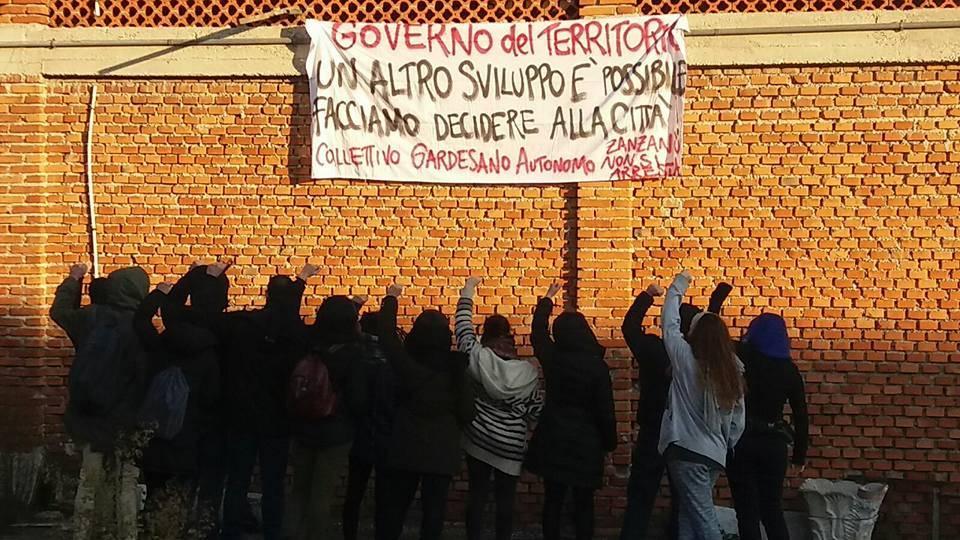 GOVERNO del TERRITORIO
UN ALTRO SVILUPPO È POSSIBILE
FACCIAMO DECIDERE ALLA CITTÀ
COLLETTIVO GARDESANO AUTONOMO
ZANZANÙ
NON SI
ARRENDE